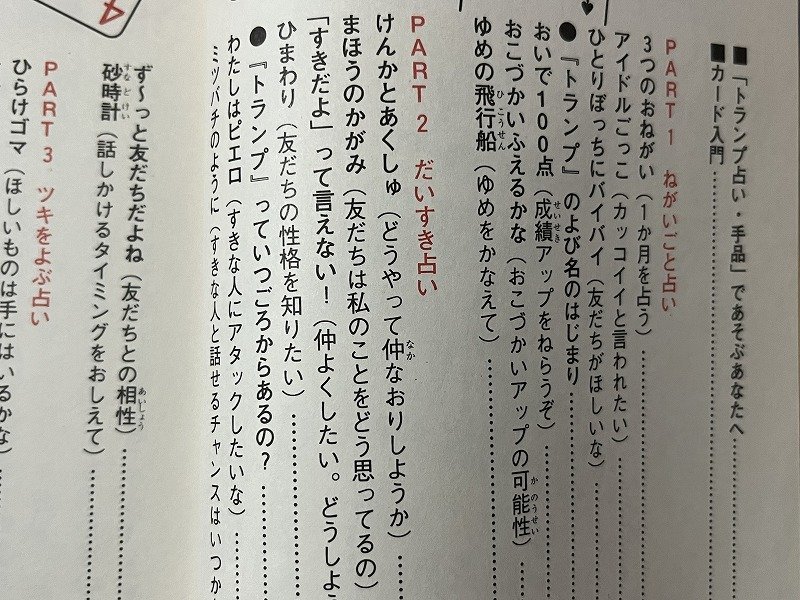 ■「トランプ占い・手品」であそぶあなたへ
■カード入門
PART1 ねがいごと占い
3つのおねがい（1か月を占う）
アイドルごっこ（カッコイイと言われたい）
ひとりぼっちにバイバイ（友だちがほしいな）
●『トランプ』のよび名のはじまり
おいで100点（成績アップをねらうぞ）
おこづかいふえるかな（おこづかいアップの可能性）
ゆめの飛行船（ゆめをかなえて）
PART2 だいすき占い
けんかとあくしゅ（どうやって仲なおりしようか）
まほうのかがみ（友だちは私のことをどう思ってるの）
「すきだよ」って言えない！（仲よくしたい。どうしよ
ひまわり（友だちの性格を知りたい）
●『トランプ』っていつごろからあるの？
わたしはピエロ（すきな人にアタックしたいな）
ミツバチのように（すきな人と話せるチャンスはいつか
4
ず〜っと友だちだよね（友だちとの相性）
砂時計（話しかけるタイミングをおしえて）
PART3 ツキをよぶ占い
ひらけゴマ（ほしいものは手にはいるかな）